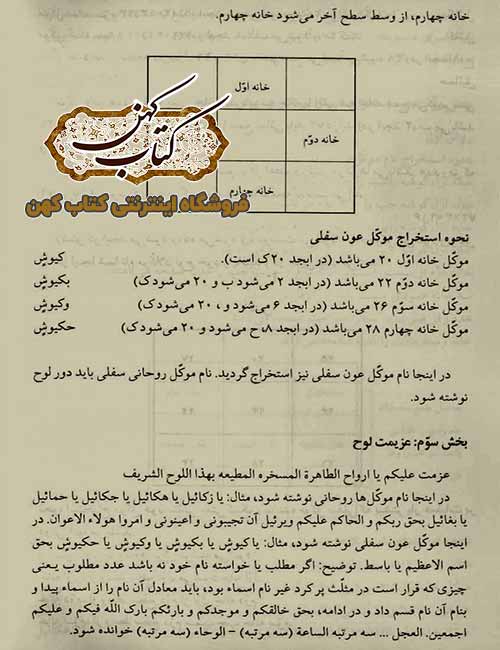 خانه چهارم، از وسط سطح آخر می‌شود خانه چهارم.
خانه اوّل
خانه دوّم
خانه چهارم
کتاب کهن
فروشگاه اینترنتی کتاب کهن
نحوه استخراج موکّل عون سفلی
موکّل خانه اوّل ۲۰ می‌باشد (در ابجد ۲۰ک است). کیوشٍ
موکّل خانه دوّم ۲۲ می‌باشد (در ابجد ۲ می‌شود ب و ۲۰ می‌شود ک) بکیوشٍ
موکّل خانه سوّم ۲۶ می‌باشد (در ابجد ۶ می‌شود و ، ۲۰ می‌شود ک) وکیوشٍ
موکّل خانه چهارم ۲۸ می‌باشد (در ابجد ۸، ح می‌شود و ۲۰ می‌شود ک) حکیوشٍ
در اینجا نام موکّل عون سفلی نیز استخراج گردید. نام موکّل روحانی سفلی باید دور لوح
نوشته شود.
بخش سوّم: عزیمت لوح
عزمت علیکم یا ارواح الطاهرة المسخره المطیعه بهذا اللوح الشریف
در اینجا نام موکّل‌ها روحانی نوشته شود، مثال: یا زکائیل یا هکائیل یا جکائیل یا حمائیل
یا بغائیل بحق ربکم و الحاکم علیکم ویرئیل آن تجیبونی و اعینونی و امروا هولاء الاعوان. در
اینجا موکّل عون سفلی نوشته شود، مثال: یا کیوشٍ یا بکیوشٍ یا وکیوشٍ یا حکیوشٍ بحق
اسم الاعظیم یا باسط. توضیح: اگر مطلب یا خواسته نام خود نه باشد عدد مطلوب یعنی
چیزی که قرار است در مثلّث پر کرد غیر نام اسماء بود، باید معادل آن نام را از اسماء پیدا و
بنام آن نام قسم داد و در ادامه، بحق خالقکم و موجدکم و بارئکم بارک اللّه فیکم و علیکم
اجمعین. العجل ... سه مرتبه الساعة (سه مرتبه) – الوحاء (سه مرتبه) خوانده شود.